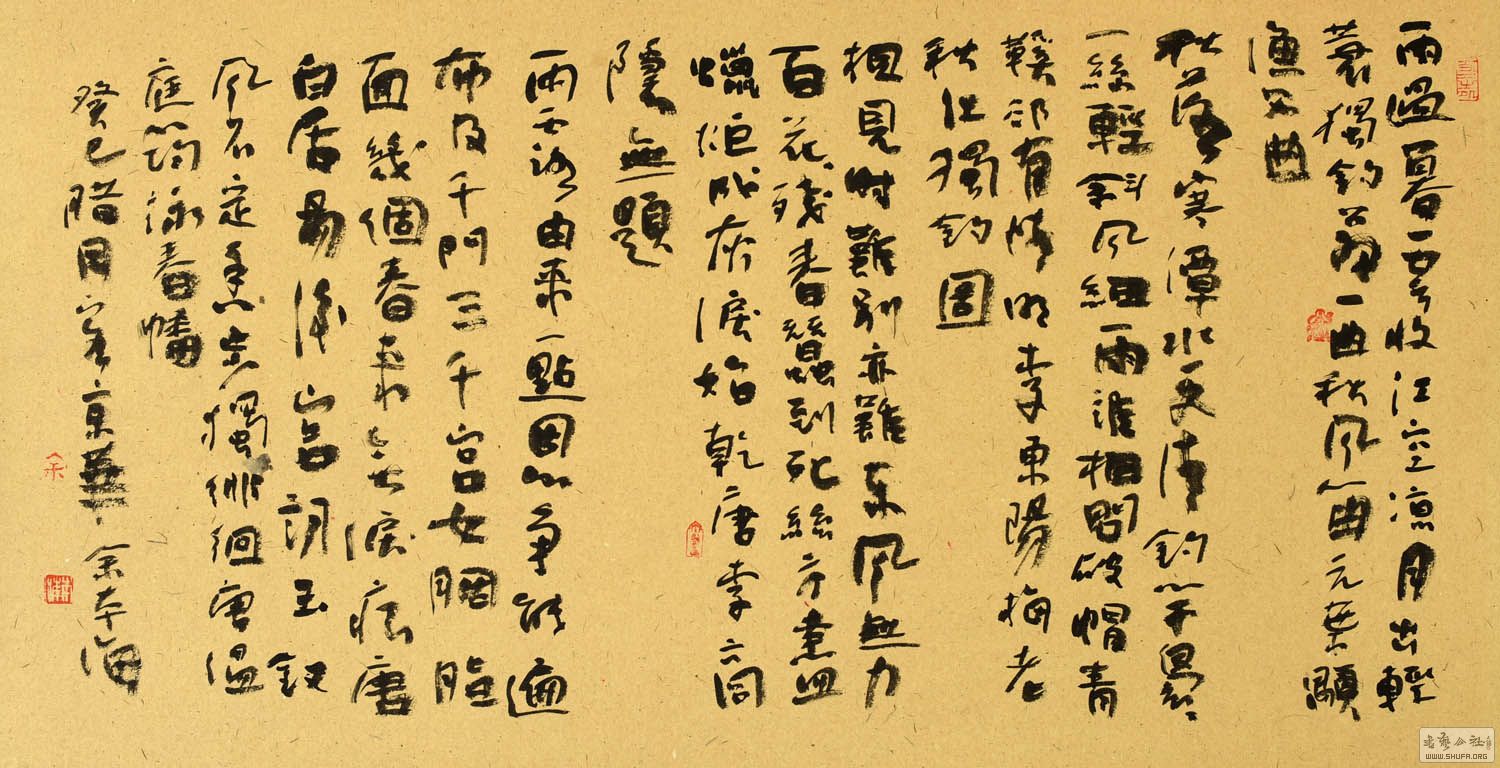 雨過暮雲收江空凉月出輕
蓑獨釣翁一曲秋風笛元葉顒
漁父曲
秋落寒潭水更清釣竿不
一絲輕斜風細雨誰相問破帽青
鞋卻有情明李東陽梅老
秋江獨釣圖
相見時難別亦難東風無力
百花殘春蠶到死絲方盡
蠟炬成灰淚始乾唐李商
隱無題
雨露由來一點恩爭能遍
布及千門三千宮女胭脂
面幾個春來無淚痕唐
白居易後宮詞玉釵
風不定香步獨徘徊唐溫
庭筠詠春幡
癸巳腊月京華余本海
書藝公社
WWW.SHUFA.ORG